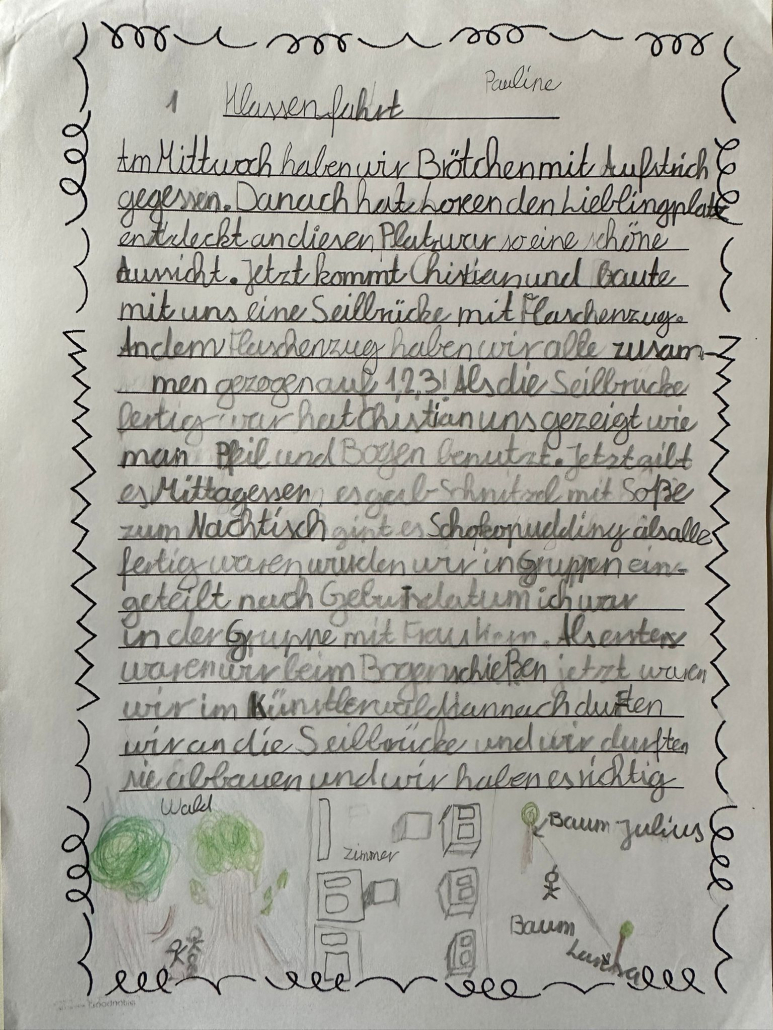 Pauline
1 Klassenfahrt
Am Mittwoch haben wir Brötchen mit Aufstrich
gegessen. Danach hat Loreen den Lieblingplatz
entdeckt an diesen Platz war so eine schöne
Aussicht. Jetzt kommt Chistian und baute
mit uns eine Seilbrücke mit Flaschenzug.
An dem Flaschenzug haben wir alle zusam-
men gezogen auf 1,2,3! Als die Seilbrücke
fertig war hat Christian uns gezeigt wie
man Pfeil und Bogen benutzt. Jetzt gibt
es Mittagessen es gab Schnitzel mit Soße
zum Nachtisch gibt es Schokopudding als alle
fertig waren wurden wir in Gruppen ein-
geteilt nach Geburtsdatum ich war
in der Gruppe mit Frau. Als erstes
waren wir beim Bogenschießen jetzt waren
wir im Künstlerwald dannach durften
wir an die Seilbrücke und wir durften
sie abbauen und wir haben es richtig
Wald
Zimmer
Baum Julius
Baum